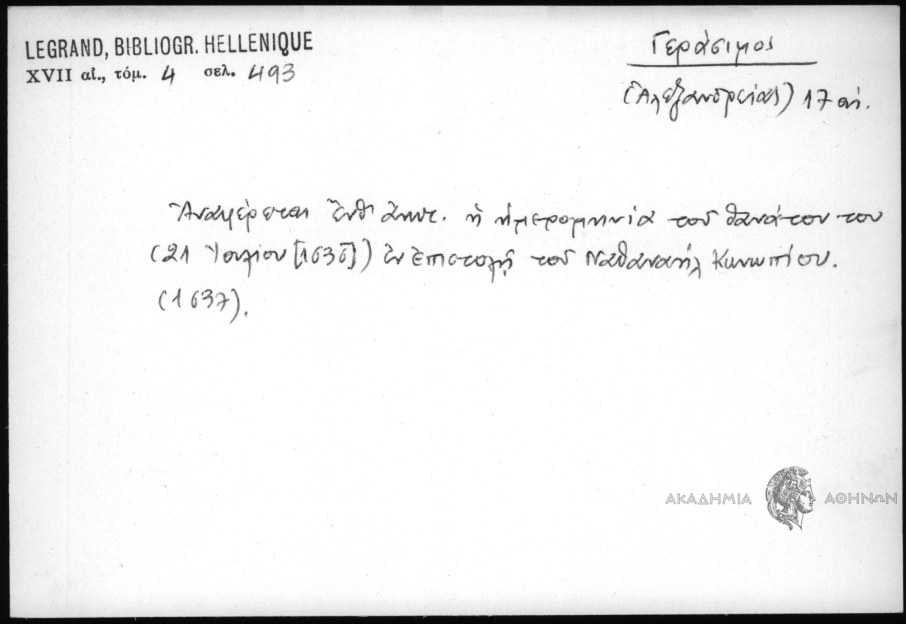 LEGRAND, BIBLIOGR. HELLENIQUE
XVII αἰ., τόμ. 4 σελ. 493
Γεράσιμος
(Ἀλεξανδρείας) 17 αἰ.
Ἀναφέρεται ἔνθ' ἀνωτ. ἡ ἡμερομηνία τοῦ θανάτου του
(21 Ἰουλίου [1636]) ἐν ἐπιστολῇ τοῦ Ναθαναὴλ Κωνωπίου.
(1637).
ΑΚΑΔΗΜΙΑ ΑΘΗΝΩΝ